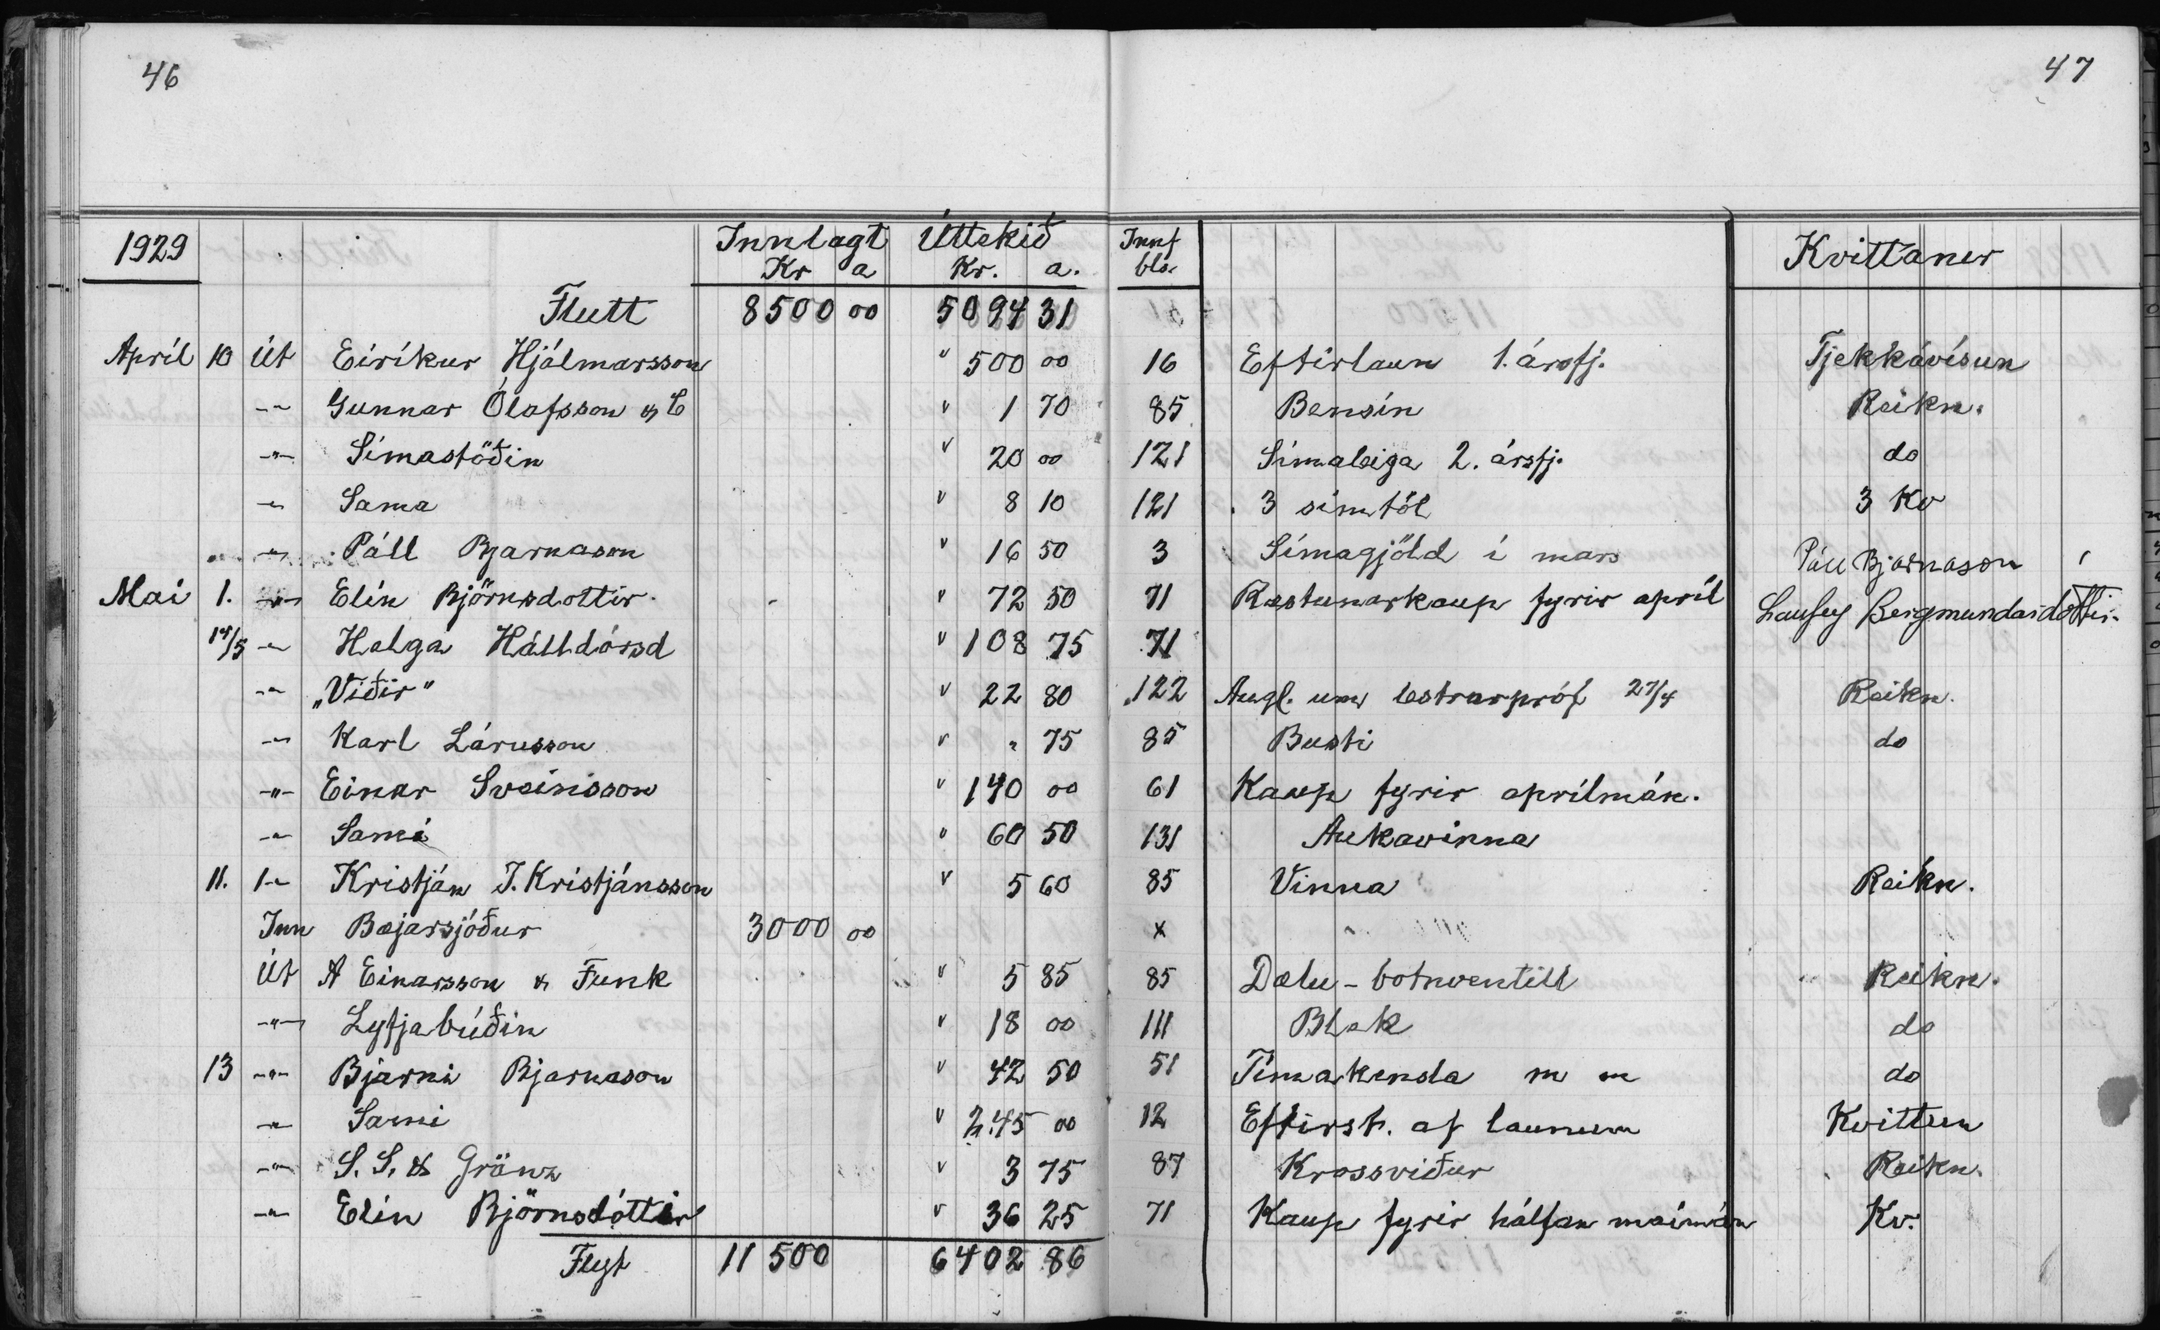 46 47
1929 Innlagt Úttekið Innf Kvittaner
Kr a Kr. a. bls.
Flutt 8500 00 5094 31
Apríl 10 Út Eiríkur Hjálmarsson " 500 00 16 Eftirlaun 1. ársfj. Tjekkávísun
-"- Gunnar Ólafsson & C " 1 70 85 Bensín Reikn.
-"- Símastöðin " 20 00 121 Símaleiga 2. ársfj. do
-"- Sama " 8 10 121 3 símtöl 3 Kv
-"- Páll Bjarnason " 16 50 3 Símagjöld í mars Páll Bjarnason
Mai 1. -"- Elín Björnsdottir " 72 50 71 Ræstunarkaup fyrir apríl Laufey Bergmundardottir.
15/5 -"- Helga Hálldórsd " 108 75 71
-"- „Víðir" " 22 80 122 Augl. um lestrarpróf 27/4 Reikn.
-"- Karl Lárusson " " 75 85 Busti do
-"- Einar Sveinsson " 140 00 61 Kaup fyrir aprílmán.
-"- Sami " 60 50 131 Aukavinna
11. -"- Kristján J. Kristjánsson " 5 60 85 Vinna Reikn.
Inn Bæjarsjóður 3000 00 x
Út A Einarsson & Funk " 5 85 85 Dælu - botnventill Reikn.
-"- Lyfjabúðin " 18 00 111 Blek do
13 -"- Bjarni Bjarnason " 42 50 51 Tímakensla m m do
-"- Sami " 245 00 12 Eftirst. af launum Kvittun
-"- S. S. & Gränz " 3 75 87 Krossviður Reikn.
-"- Elín Björnsdóttir " 36 25 71 Kaup fyrir hálfan maímán Kv.
Flyt 11 500 6402 86